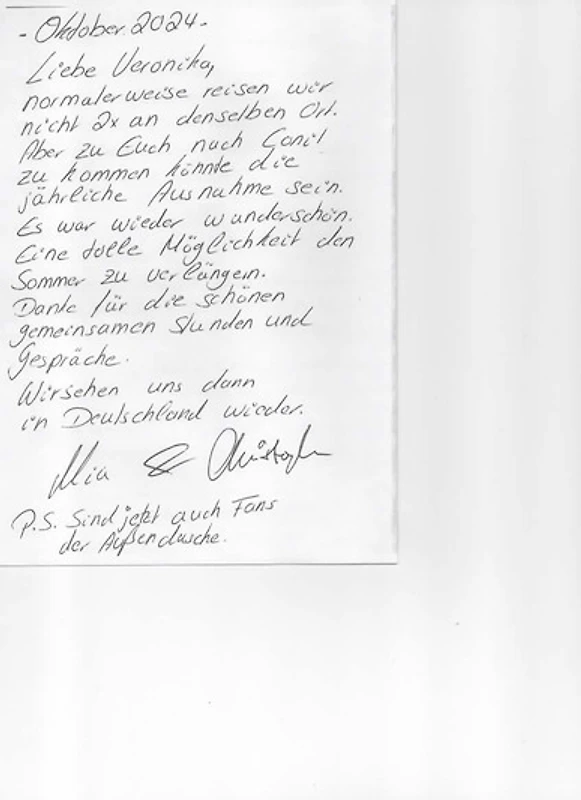 - Oktober 2024 -
Liebe Veronika,
normalerweise reisen wir
nicht 2x an denselben Ort.
Aber zu Euch nach Conil
zu kommen könnte die
jährliche Ausnahme sein.
Es war wieder wunderschön.
Eine tolle Möglichkeit den
Sommer zu verlängern.
Danke für die schönen
gemeinsamen Stunden und
Gespräche.
Wir sehen uns dann
in Deutschland wieder.
Mia & Christoph
P.S. Sind jetzt auch Fans
der Außendusche.